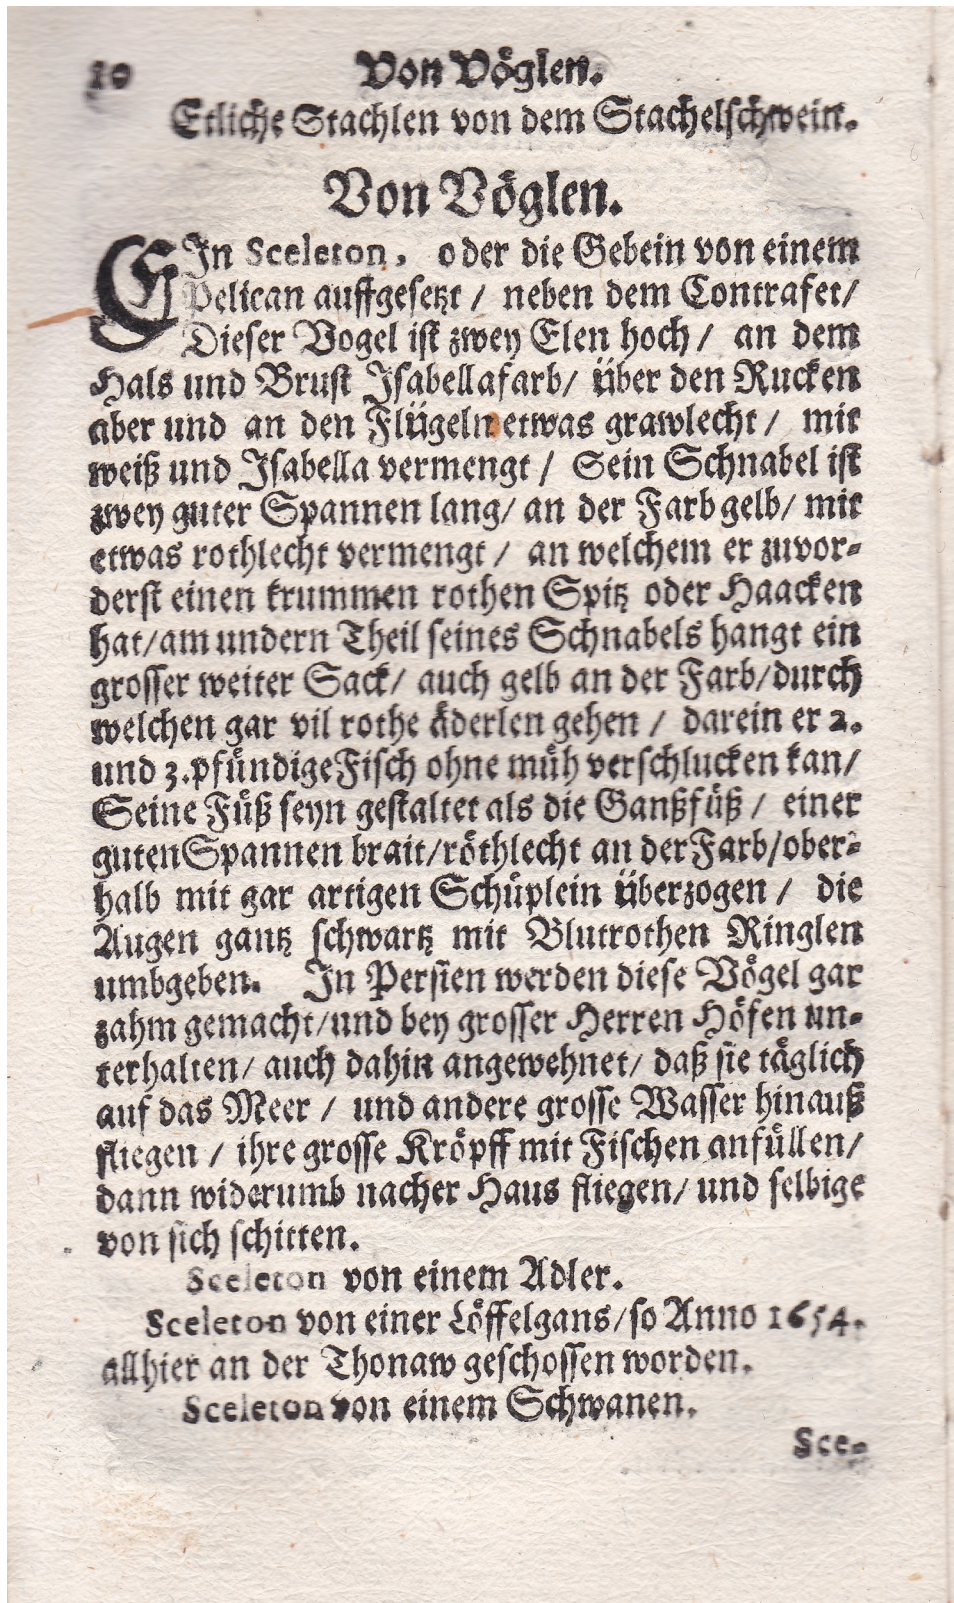 10 Von Vöglen.
Etliche Stachlen von dem Stachelschwein.
Von Vöglen.
EIn Sceleton, oder die Gebein von einem
Pelican auffgesetzt / neben dem Contrafet/
Dieser Vogel ist zwey Elen hoch / an dem
Hals und Brust Isabellafarb/ über den Rucken
aber und an den Flügeln etwas grawlecht / mit
weiß und Isabella vermengt / Sein Schnabel ist
zwey guter Spannen lang/ an der Farb gelb/ mit
etwas rothlecht vermengt / an welchem er zuvor-
derst einen krummen rothen Spitz oder Haacken
hat/am undern Theil seines Schnabels hangt ein
grosser weiter Sack/ auch gelb an der Farb/durch
welchen gar vil rothe äderlen gehen / darein er 2.
und 3.pfündige Fisch ohne müh verschlucken kan/
Seine Füß seyn gestaltet als die Ganßfüß / einer
guten Spannen brait/röthlecht an der Farb/ober-
halb mit gar artigen Schüplein überzogen / die
Augen gantz schwartz mit Blutrothen Ringlen
umbgeben. In Persien werden diese Vögel gar
zahm gemacht/und bey grosser Herren Höfen un-
terhalten/ auch dahin angewehnet/ daß sie täglich
auf das Meer / und andere grosse Wasser hinauß
fliegen / ihre grosse Kröpff mit Fischen anfüllen/
dann widerumb nacher Haus fliegen/ und selbige
von sich schitten.
Sceleton von einem Adler.
Sceleton von einer Löffelgans/so Anno 1654.
allhier an der Thonaw geschossen worden.
Sceleton von einem Schwanen.
Sce-